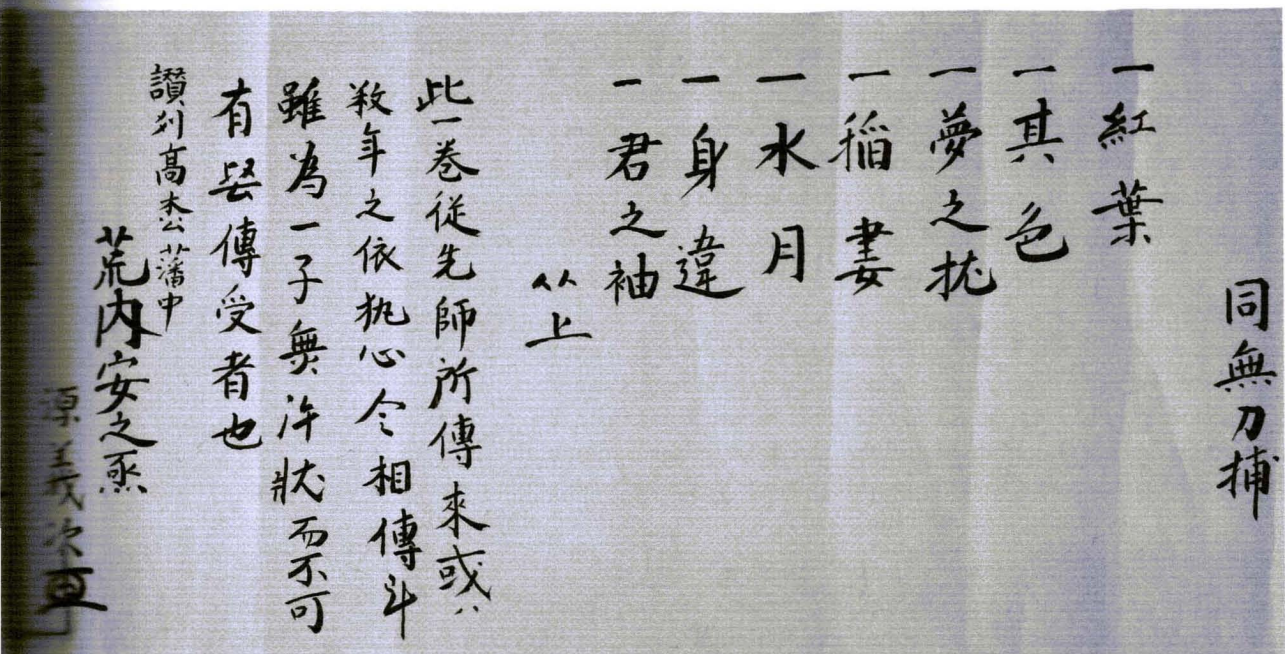 同無刀捕
一紅葉
一其色
一夢之枕
一稲妻
一水月
一身違
一君之袖
以上
此一巻従先師所傳来或ハ
数年之依執心令相傳斗
雖為一子無許状而不可
有妄傳受者也
讃州高松藩中
荒内安之丞
源義次